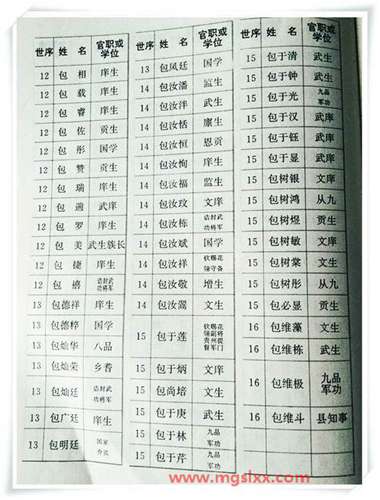 世序 姓名 官职或学位
12 包相 庠生
12 包载 庠生
12 包睿 庠生
12 包佐 贡生
12 包彤 国学
12 包赞 贡生
12 包瑞 庠生
12 包 武庠
12 包罗 庠生
12 包美 武生族长
12 包捷 庠生
12 包禧 诰封武功将军
13 包德祥 庠生
13 包德粹 国学
13 包灿华 八品
13 包灿荣 乡耆
13 包灿廷 诰封武功将军
13 包广廷 庠生
13 包明廷
世序 姓名 官职或学位
13 包凤廷 国学
14 包汝潘 监生
14 包汝泮 武生
14 包汝恬 廪生
14 包汝恒 恩贡
14 包汝恂 庠生
14 包汝福 监生
14 包汝玟 文庠
14 包汝栋 诰封武功将军
14 包汝斌 国学
14 包汝祥 钦赐花翎守备
14 包汝敬 增生
14 包汝霭 文生
15 包于莲 钦赐花翎副将贵州提督军门
15 包于炳 文庠
15 包尚培 文生
15 包于庚 武生
15 包于林 九品军功
15 包于芹 九品军功
世序 姓名 官职或学位
15 包于清 武生
15 包于钟 武生
15 包于光 九品军功
15 包于汉 武庠
15 包于钰 武庠
15 包于显 武庠
15 包树银 文庠
15 包树鸿 从九
15 包树煜 贡生
15 包树敏 文庠
15 包树棠 文庠
15 包树彤 从九
15 包必显 贡生
16 包维藻 文生
16 包维栋 武生
16 包维极 九品军功
16 包维斗 县知事
www.mgslxx.com